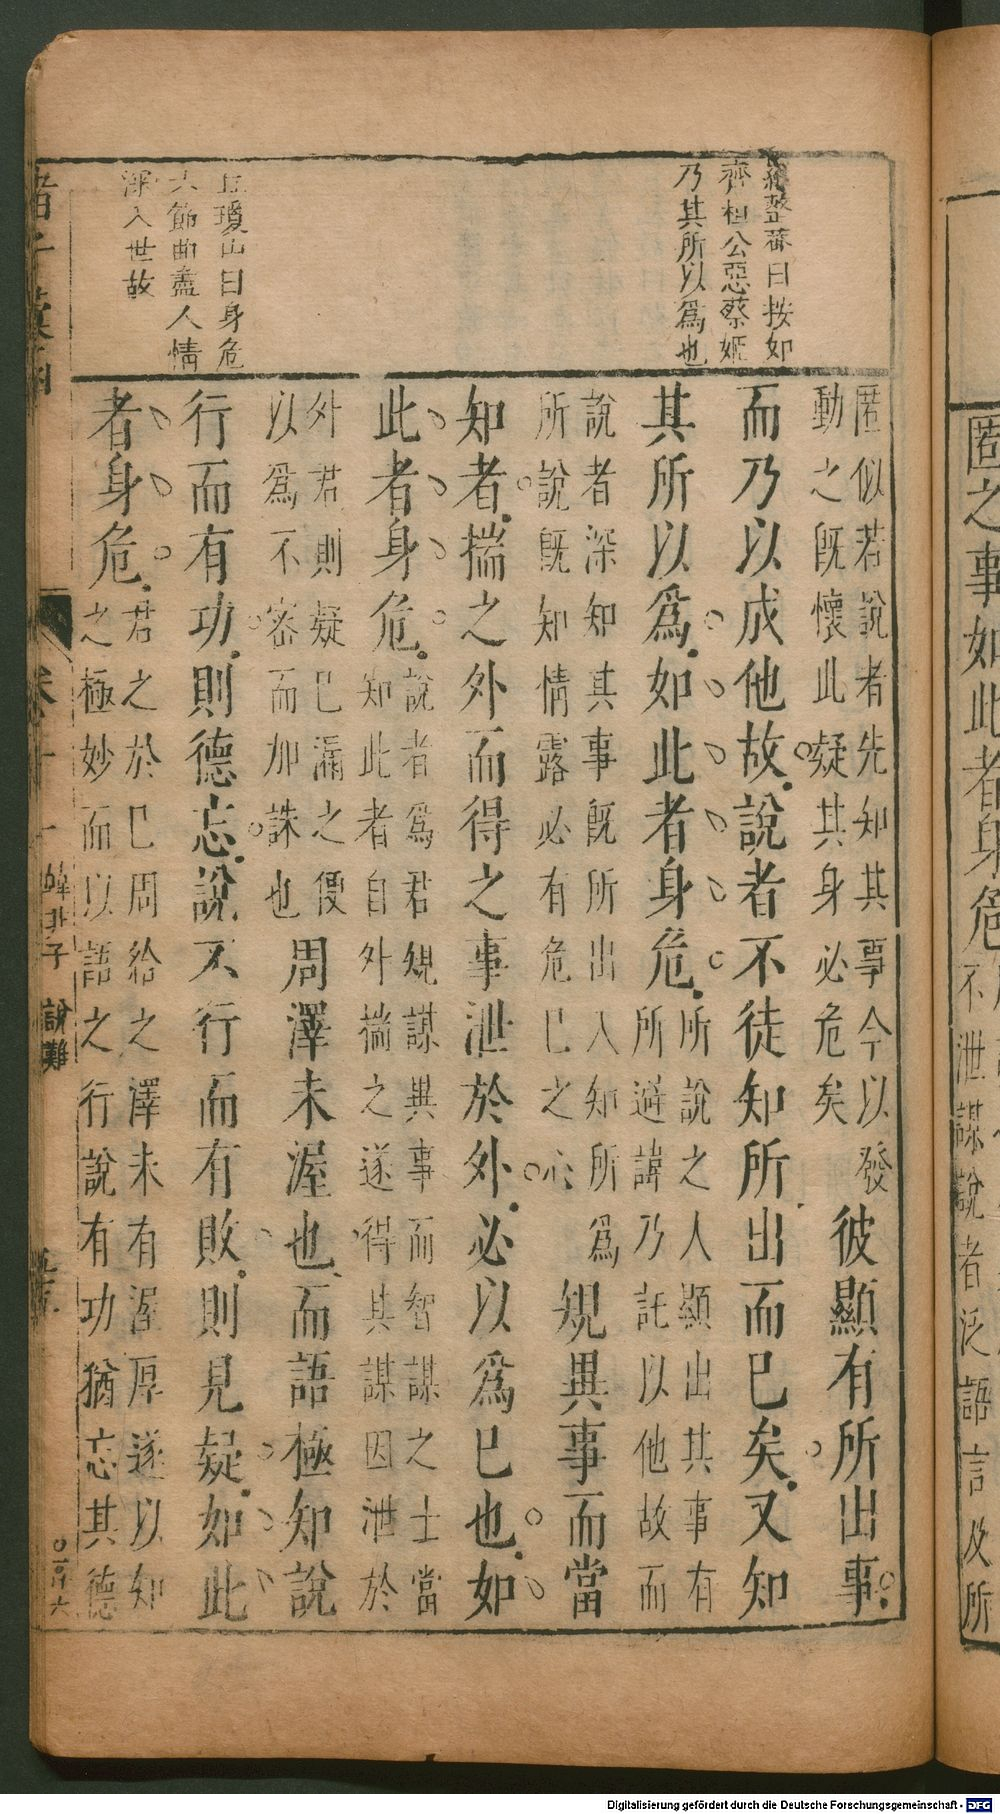 匿之事如此者身危
不泄謀說者泛語言及所
羅整菴曰按如
齊桓公惡蔡姬
乃其所以爲也
丘瓊山曰身危
六節曲盡人情
深入世故
匿似若說者先知其事今以發
動之旣懷此疑其身必危矣
彼顯有所出事
而乃以成他故說者不徒知所出而巳矣又知
其所以爲如此者身危
所說之人顯出其事有
所避諱乃託以他故而
說者深知其事旣所出入知所爲
所說旣知情露必有危巳之心
規異事而當
知者揣之外而得之事泄於外必以爲巳也如
此者身危
說者爲君規謀異事而智謀之士當
知此者自外揣之遂得其謀因泄於
外君則疑巳漏之便
以爲不密而加誅也
周澤未渥也而語極知說
行而有功則德忘說不行而有敗則見疑如此
者身危
君之於巳周給之澤未有渥厚遂以知
之極妙而以語之行說有功猶忘其德
諸子彙函
卷十一
韓非子 說難
Digitalisierung gefördert durch die Deutsche Forschungsgemeinschaft - DFG